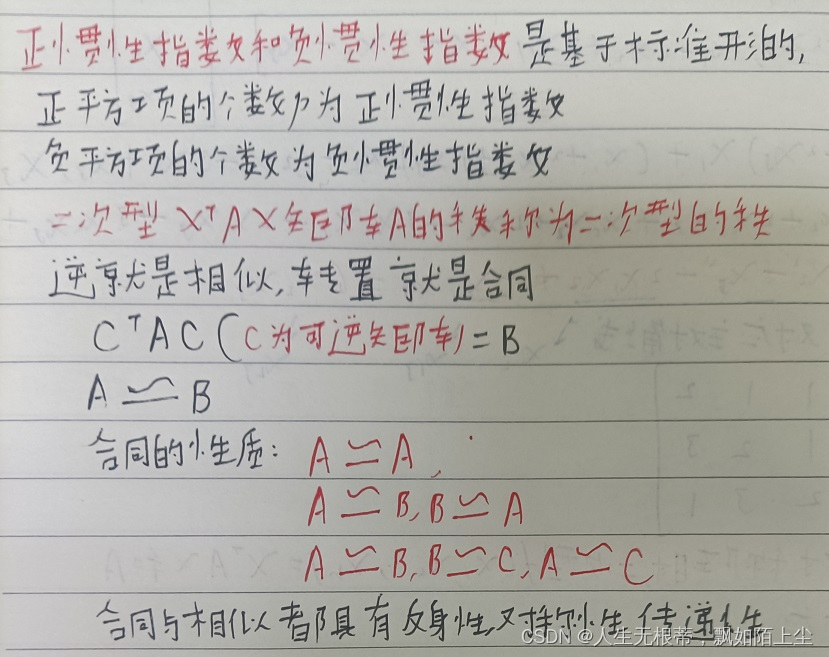 正惯性指数和负惯性指数是基于标准形的,
正平方项的个数为正惯性指数
负平方项的个数为负惯性指数
二次型 XᵀAX矩阵A的秩称为二次型的秩
逆就是相似,转置就是合同
CᵀAC(C为可逆矩阵)=B
A ≃ B
合同的性质: A ≃ A,
A ≃ B, B ≃ A
A ≃ B, B ≃ C, A ≃ C
合同与相似都具有反身性,对称性,传递性
CSDN @人生无根蒂,飘如陌上尘